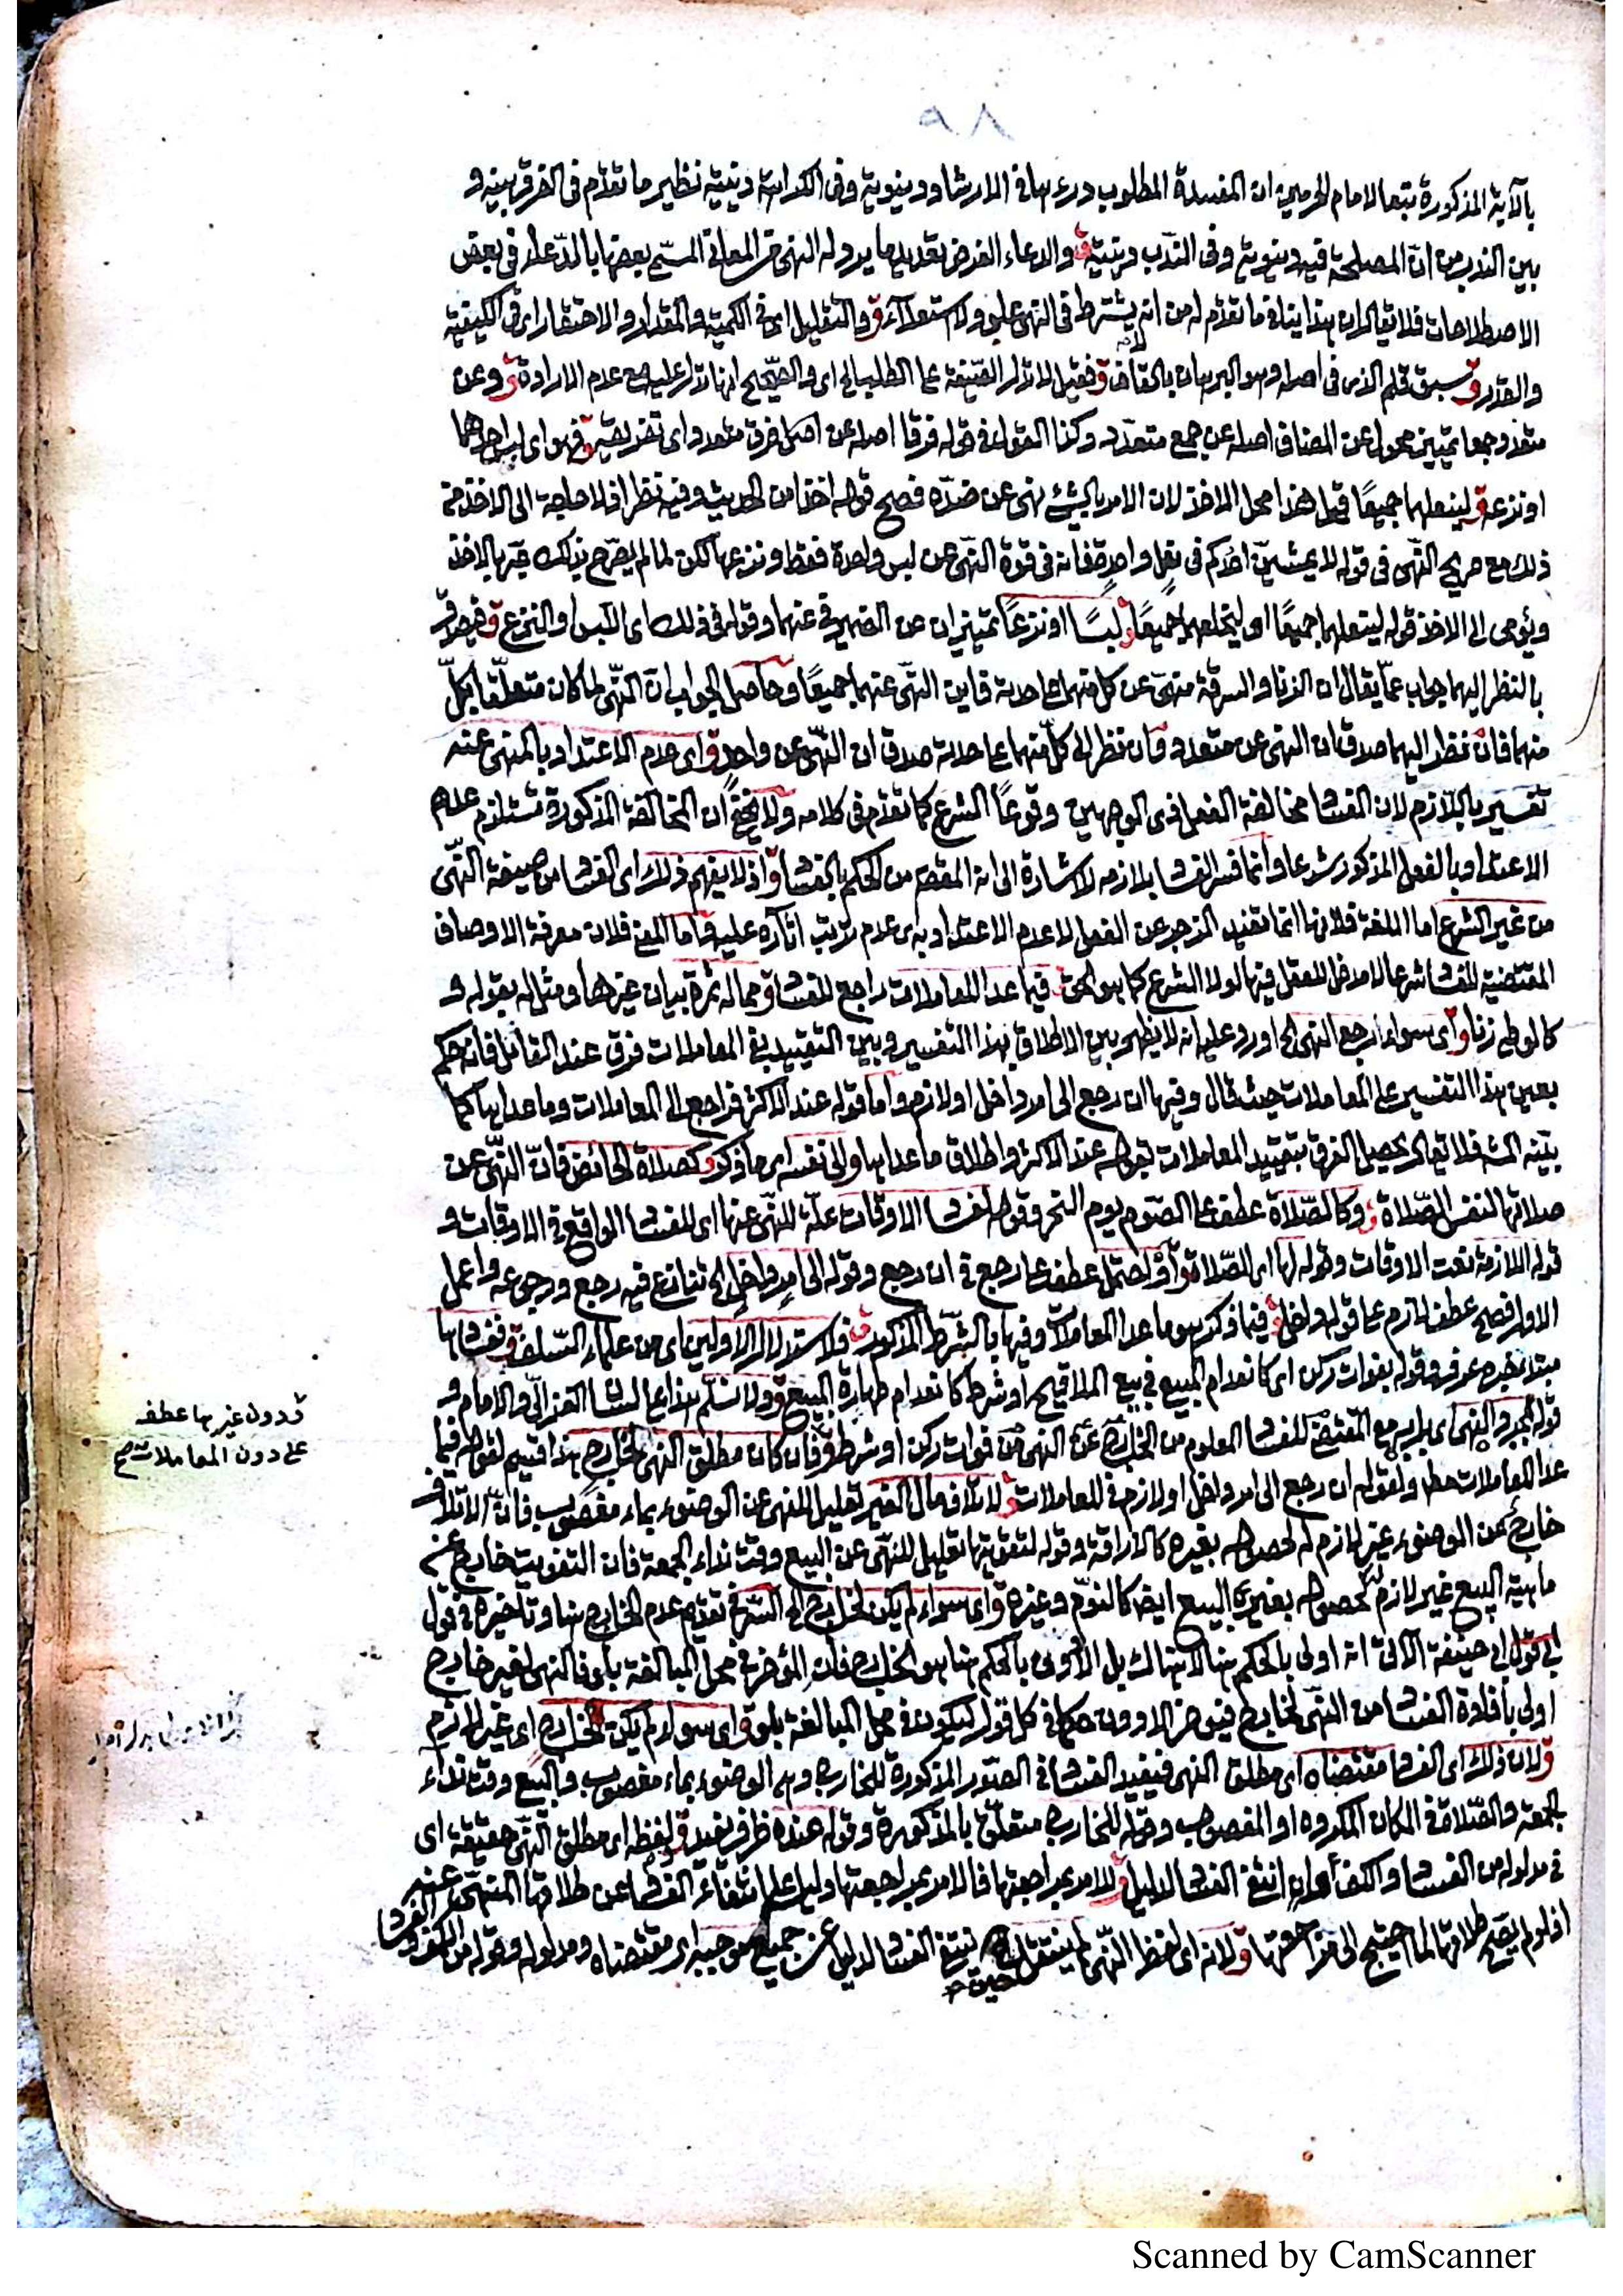 ٩٨
بالآية المذكورة تبعا لامام الحرمين ان المفسدة المطلوب درءها في الارشاد دنيوية وفي الكراهة دينية نظير ما تقدم في الفرق بينه و
بين الندب من ان المصلحة فيه دنيوية وفي الندب دينية ق والدعاء الغرض تعديد ما يرد له النهي من المعاني المسمى بعضها بالدعاء في بعض
الاصطلاحات فلا يقال ان هذا ينافي ما تقدم له من انه لا يشترط في النهي علو ولا استعلاء ق والتقليل اي في الكمية والمقدار والاحتقار اي في الكيفية
والقدر ق سبق قلم الذي في اصله وهو البرهان بالقاف ق فقيل لا تدل الصيغة على الطلب الخ اي والصحيح انها تدل عليه مع عدم الارادة ق وعن
متعدد جمعا تمييز محول عن المضاف اصله عن جمع متعدد وكذا القول في قوله فرقا اصله عن اي فرق متعدد اي تفريقه ق فهو اي لبس احدهما
او نزعه ق لينعلهما جميعًا قيل هذا محل الاخذ لان الامر بالشئ نهي عن ضده فصح قوله اخذا من الحديث وفيه نظر اذ لا حاجة الى الاخذ من
ذلك مع صريح النهي في قوله لا يمشين احدكم في نعل واحدة فانه في قوة النهي عن لبس واحدة فقط ونزعها لكن لما لم يصرح بذلك عبّر بالاخذ
ويؤمى الى الاخذ قوله لينعلهما جميعًا او ليخلعهما جميعًا ق لبسًا او نزعًا تمييزان عن الضمير في عنهما وقوله في ذلك اي اللبس والنزع ق فيصدق
بالنظر اليهما جواب عما يقال ان الزنا والسرقة منهي عن كل منهما على حدته فاين النهي عنهما جميعًا وحاصل الجواب ان النهي لما كان متعلقا بكل
منهما فان نظر اليهما صدق ان النهي عن متعدد وان نظر الى كل منهما على حدته صدق ان النهي عن واحد ق اي عدم الاعتداد بالمنهي عنه
تفسير باللازم لان الفساد مخالفة الفعل ذي الوجهين وقوعًا الشرع كما تقدم في كلامه ولا يخفى ان المخالفة المذكورة تستلزم عدم
الاعتداد بالفعل المذكور شرعا وانما فسر الفساد بلازمه لاشارة الى انه المقصود من الحكم بالفساد ق اذ لا يفهم ذلك اي الفساد من صيغة النهي
من غير الشرع اما اللغة فلانها انما تفيد الزجر عن الفعل لا عدم الاعتداد به اي عدم ترتب آثاره عليه واما المعنى فلان معرفة الاوصاف
المقتضية للفساد شرعا لا مدخل للعقل فيها لولا الشرع كما هو الحق ق فيما عدا المعاملات راجع للفساد ق مما له ثمرة بيان غيرها ومثل له بقوله و
كالوطء زنا ق اي سواء ارجع النهي الخ اورد عليه انه لا يظهر بين الاطلاق بهذا التفسير وبين التقييد في المعاملات فرق عند القائل فانه حكم
بعين هذا التفسير على المعاملات حيث قال وفيها ان رجع الى امر داخل او لازم واما قوله عند الاكثر فراجع الى المعاملات وما عداها كما
بينه الشه فلا يقال يحصل الفرق بتقييد المعاملات بقوله عند الاكثر واطلاق ما عداها ق والى نفسه اي ما ذكر ق كصلاة الحائض فان النهي عن
صلاتها لنفس الصلاة ق وكالصلاة عطف على الصوم يوم النحر وقوله لفساد الاوقات علة للنهي عنها اي للفساد الواقع في الاوقات و
قوله اللازمة نعت الاوقات وقوله لها اي للصلاة ق او احتمل عطف على رجع في ان رجع وقوله الى امر داخل الخ تنازع فيه رجع ورجوعه واعمل
الاول فصح عطف لازم على قوله داخل ق فيما ذكر هو ما عدا المعاملات وفيها بالشرط المذكور ق فلاستدلال الاولين اي من علماء السلف ق ففسادها
مبتدء خبره عرف وقوله بفوات ركن اي كانعدام المبيع في بيع الملاقيح او شرط كانعدام طهارة المبيع ق ولا نسلم هذا على لسان الغزالي والامام و
قوله بمجرد النهي اي بل به مع المقتضي للفساد المعلوم من الخارج عن النهي من فوات ركن او شرط ق فان كان مطلق النهي لخارج هذا قسيم لقوله فيما
عدا المعاملات مطلقا ولقوله ان رجع الى امر داخل او لازم في المعاملات ق لاتلاف مال الغير تعليل للنهي عن الوضوء بماء مغصوب فان الاتلاف
خارج عن الوضوء غير لازم له لحصوله بغيره كالاراقة وقوله لتفويتها تعليل للنهي عن البيع وقت نداء الجمعة فان التفويت خارج عن
ماهية البيع غير لازم له لحصوله بغير البيع ايضا كالنوم وغيره ق اي سواء لم يكن لخارج الخ السر في تقديم عدم الخارج هنا وتأخيره في قول
ابي حنيفة الآتي انه اولى بالحكم هنا لا هنالك بل الاولى بالحكم هناك هو الخارج فان المؤخر في محل المبالغة بلو فالنهي لغير خارج
اولى بافادة الفساد من النهي لخارج فيؤخر الادون حكما في كل قول ليكون في محل المبالغة بلو ق اي سواء لم يكن لخارج اي غير لازم
ق لان ذلك اي الفساد مقتضاه اي مطلق النهي فيفيد الفساد في الصور المذكورة للخارج وهي الوضوء بماء مغصوب والبيع وقت نداء
الجمعة والصلاة في المكان المكروه او المغصوب وقوله للخارج متعلق بالمذكورة وقوله عنده ظرف ليفيد ق لفظه اي مطلق النهي حقيقة اي
في مدلوله من الفساد والكف اي وان انتفى الفساد لدليل ق للامر بمراجعتها فالامر بمراجعتها دليل على انتفاء الفساد عن طلاقها المنهي عنه
اذ لو لم يصح طلاقها لما احتيج الى مراجعتها ق لانه اي لفظ النهي لم ينتقل حين انتفى الفساد لدليل عن جميع موجبه اي مقتضاه ومدلوله وقوله من الكف والفساد
ق دون غيرها عطف
على دون المعاملات صح